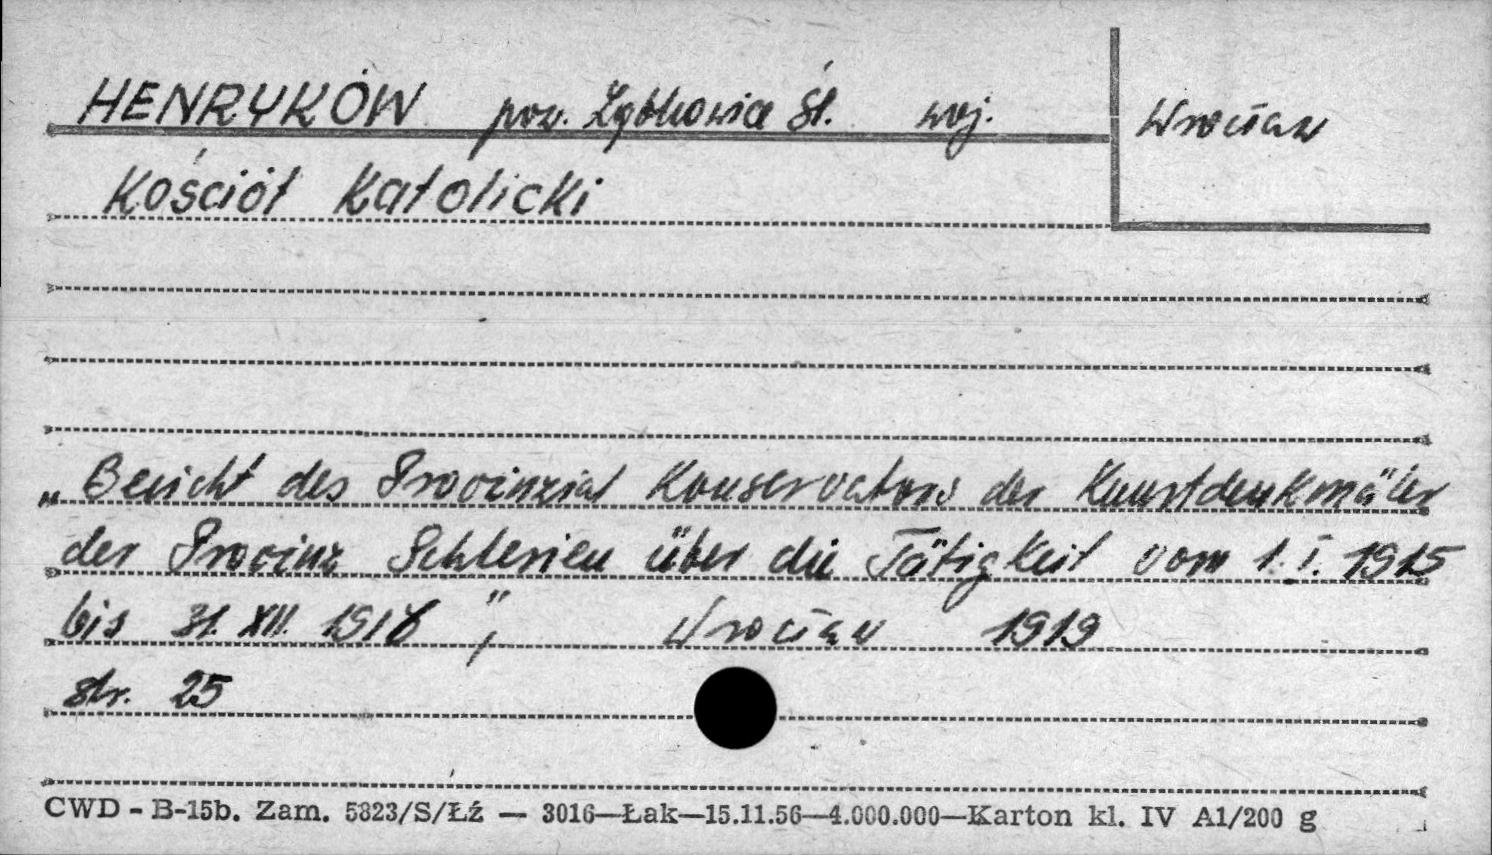 HENRYKÓW pow. Ząbkowice Śl. woj. Wrocław
Kościół Katolicki
„Bericht des Provinzial Konservators der Kunstdenkmäler
der Provinz Schlesien über die Tätigkeit vom 1. I. 1915
bis 31. XII. 1918", Wrocław 1919
str. 25
CWD - B-15b. Zam. 5823/S/Łź — 3016—Łak—15.11.56—4.000.000—Karton kl. IV A1/200 g